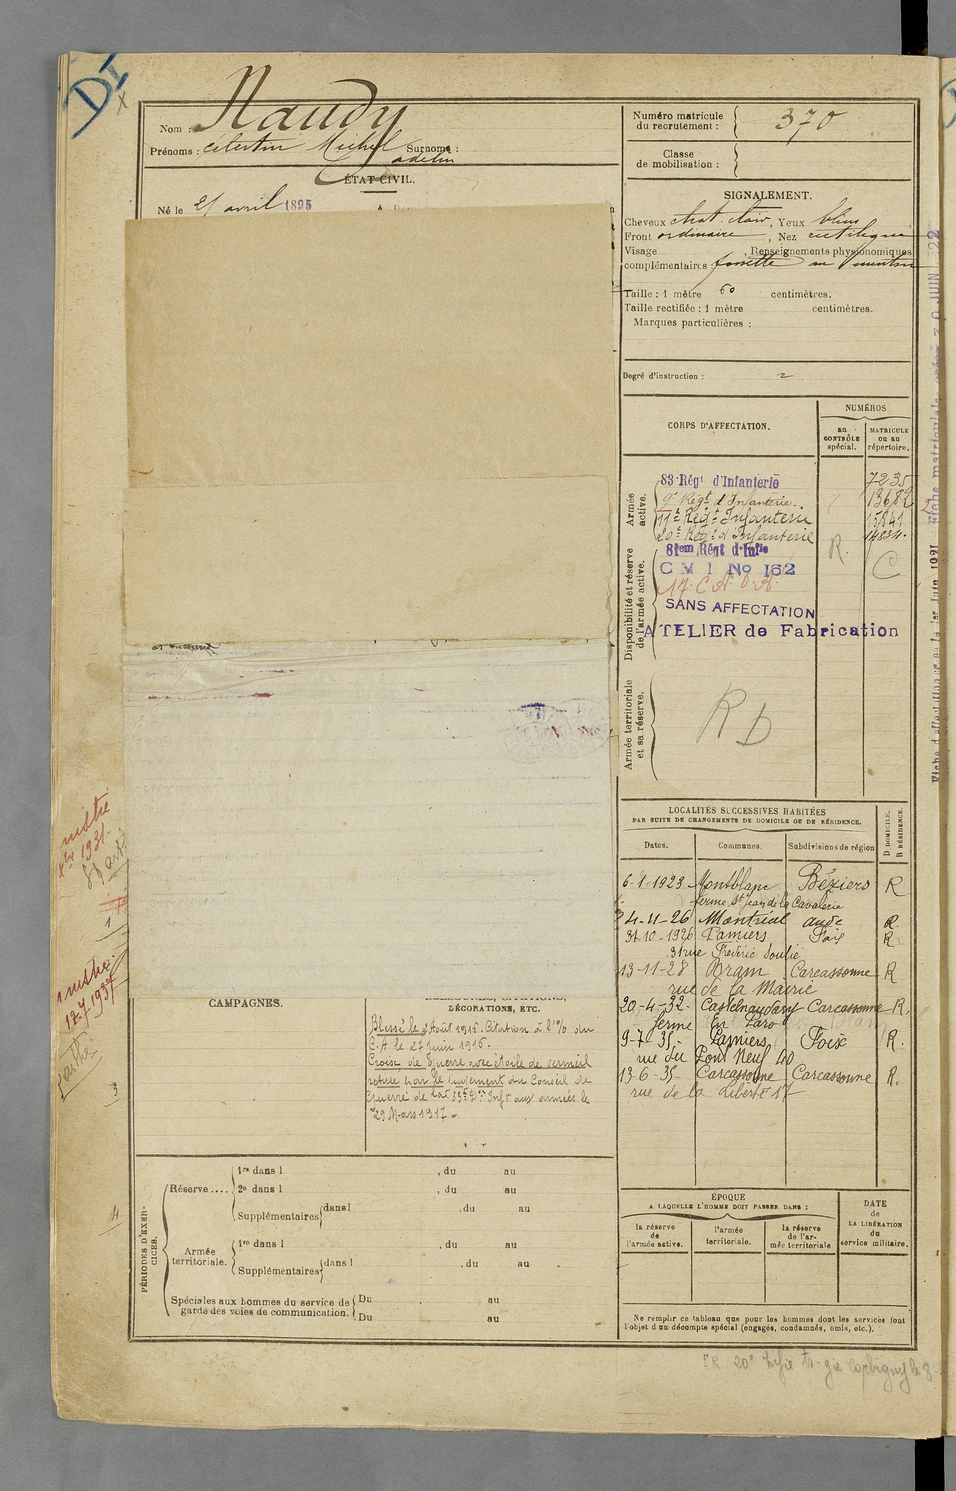 DI
Nom : Naudy
Prénoms : Célestin Michel Surnoms :
adelin
ÉTAT CIVIL.
Né le 21 avril 1895
Numéro matricule
du recrutement : 370
Classe
de mobilisation :
SIGNALEMENT.
Cheveux chat. clair, Yeux bleus
Front ordinaire, Nez rectiligne
Visage , Renseignements physionomiques
complémentaires fossette au menton
Taille : 1 mètre 60 centimètres.
Taille rectifiée : 1 mètre centimètres.
Marques particulières :
Degré d'instruction : 2
CORPS D'AFFECTATION.
NUMÉROS
au
CONTRÔLE
spécial.
MATRICULE
ou au
répertoire.
Armée
active.
83 Régt d'Infanterie 7235
9e Régt d'Infanterie. 13682
11e Régt Infanterie 15841
20e Régt d'Infanterie 14834.
Disponibilité et réserve
de l'armée active.
81em Régt d'Infie
R. C
C M I No 162
17. C.A.O.A.
SANS AFFECTATION
ATELIER de Fabrication
Armée territoriale
et sa réserve.
R D
LOCALITÉS SUCCESSIVES HABITÉES
PAR SUITE DE CHANGEMENTS DE DOMICILE OU DE RÉSIDENCE.
D DOMICILE.
R RÉSIDENCE.
Dates. Communes. Subdivisions de région
6-1-1923 Montblanc Béziers R
ferme St Jean de la Cavalerie
4-11-26 Montréal aude R.
31-10-1926 Pamiers Foix R
31 rue Frédéric Soulié
13-11-28 Bram Carcassonne R
rue de la Mairie
20-4-32- Castelnaudary Carcassonne R.
ferme En
9-7-35- Pamiers, Foix R.
rue du Pont Neuf 40
13-6-35- Carcassonne Carcassonne R.
rue de la Liberté 17
CAMPAGNES.
BLESSURES, CITATIONS,
DÉCORATIONS, ETC.
Blessé le Août 1915. Citation à l'O/ du
C.A le 27 Juin 1916.
Croix de Guerre avec étoile de vermeil
retirée par le jugement du Conseil de
Guerre de la 33e Don Inft aux armées le
29 Mars 1917 -
PÉRIODES D'EXER-
CICES.
Réserve .... 1re dans l , du au
2e dans l , du au
Supplémentaires dans l , du au
Armée
territoriale. 1re dans l , du au
Supplémentaires dans l , du au
Spéciales aux hommes du service de
garde des voies de communication. Du au
Du au
ÉPOQUE
A LAQUELLE L'HOMME DOIT PASSER DANS :
la réserve
de
l'armée active.
l'armée
territoriale.
la réserve
de l'ar-
mée territoriale
DATE
de
LA LIBÉRATION
du
service militaire.
Ne remplir ce tableau que pour les hommes dont les services font
l'objet d'un décompte spécial (engagés, condamnés, omis, etc.).
1931.
12.7.1937
1
3
4